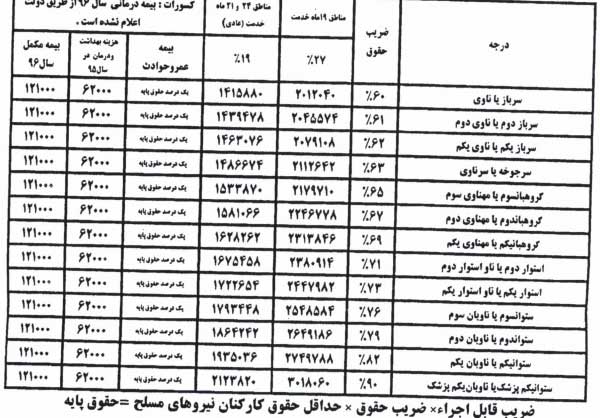 کسورات : بیمه درمانی سال ۹۶ از طریق دولت اعلام نشده است .
درجه | ضریب حقوق | مناطق ۱۹ ماه خدمت | مناطق ۲۴ و ۲۱ ماه خدمت (عادی) | بیمه عمروحوادث | هزینه بهداشت ودرمان در سال ۹۵ | بیمه مکمل سال ۹۶
٪۲۷ | ٪۱۹
سرباز یا ناوی | ٪۶۰ | ۲۰۱۲۰۴۰ | ۱۴۱۵۸۸۰ | یک درصد حقوق پایه | ۶۲۰۰۰ | ۱۲۱۰۰۰
سرباز دوم یا ناوی دوم | ٪۶۱ | ۲۰۴۵۵۷۴ | ۱۴۳۹۴۷۸ | یک درصد حقوق پایه | ۶۲۰۰۰ | ۱۲۱۰۰۰
سرباز یکم یا ناوی یکم | ٪۶۲ | ۲۰۷۹۱۰۸ | ۱۴۶۳۰۷۶ | یک درصد حقوق پایه | ۶۲۰۰۰ | ۱۲۱۰۰۰
سرجوخه یا سرناوی | ٪۶۳ | ۲۱۱۲۶۴۲ | ۱۴۸۶۶۷۴ | یک درصد حقوق پایه | ۶۲۰۰۰ | ۱۲۱۰۰۰
گروهبانسوم یا مهناوی سوم | ٪۶۵ | ۲۱۷۹۷۱۰ | ۱۵۳۳۸۷۰ | یک درصد حقوق پایه | ۶۲۰۰۰ | ۱۲۱۰۰۰
گروهباندوم یا مهناوی دوم | ٪۶۷ | ۲۲۴۶۷۷۸ | ۱۵۸۱۰۶۶ | یک درصد حقوق پایه | ۶۲۰۰۰ | ۱۲۱۰۰۰
گروهبانیکم یا مهناوی یکم | ٪۶۹ | ۲۳۱۳۸۴۶ | ۱۶۲۸۲۶۲ | یک درصد حقوق پایه | ۶۲۰۰۰ | ۱۲۱۰۰۰
استوار دوم یا ناو استوار دوم | ٪۷۱ | ۲۳۸۰۹۱۴ | ۱۶۷۵۴۵۸ | یک درصد حقوق پایه | ۶۲۰۰۰ | ۱۲۱۰۰۰
استوار یکم یا ناو استوار یکم | ٪۷۳ | ۲۴۴۷۹۸۲ | ۱۷۲۲۶۵۴ | یک درصد حقوق پایه | ۶۲۰۰۰ | ۱۲۱۰۰۰
ستوانسوم یا ناوبان سوم | ٪۷۶ | ۲۵۴۸۵۸۴ | ۱۷۹۳۴۴۸ | یک درصد حقوق پایه | ۶۲۰۰۰ | ۱۲۱۰۰۰
ستواندوم یا ناوبان دوم | ٪۷۹ | ۲۶۴۹۱۸۶ | ۱۸۶۴۲۴۲ | یک درصد حقوق پایه | ۶۲۰۰۰ | ۱۲۱۰۰۰
ستوانیکم یا ناوبان یکم | ٪۸۲ | ۲۷۴۹۷۸۸ | ۱۹۳۵۰۳۶ | یک درصد حقوق پایه | ۶۲۰۰۰ | ۱۲۱۰۰۰
ستوانیکم پزشک یا ناوبان یکم پزشک | ٪۹۰ | ۳۰۱۸۰۶۰ | ۲۱۲۳۸۲۰ | یک درصد حقوق پایه | ۶۲۰۰۰ | ۱۲۱۰۰۰
ضریب قابل اجراء× ضریب حقوق × حداقل حقوق کارکنان نیروهای مسلح =حقوق پایه